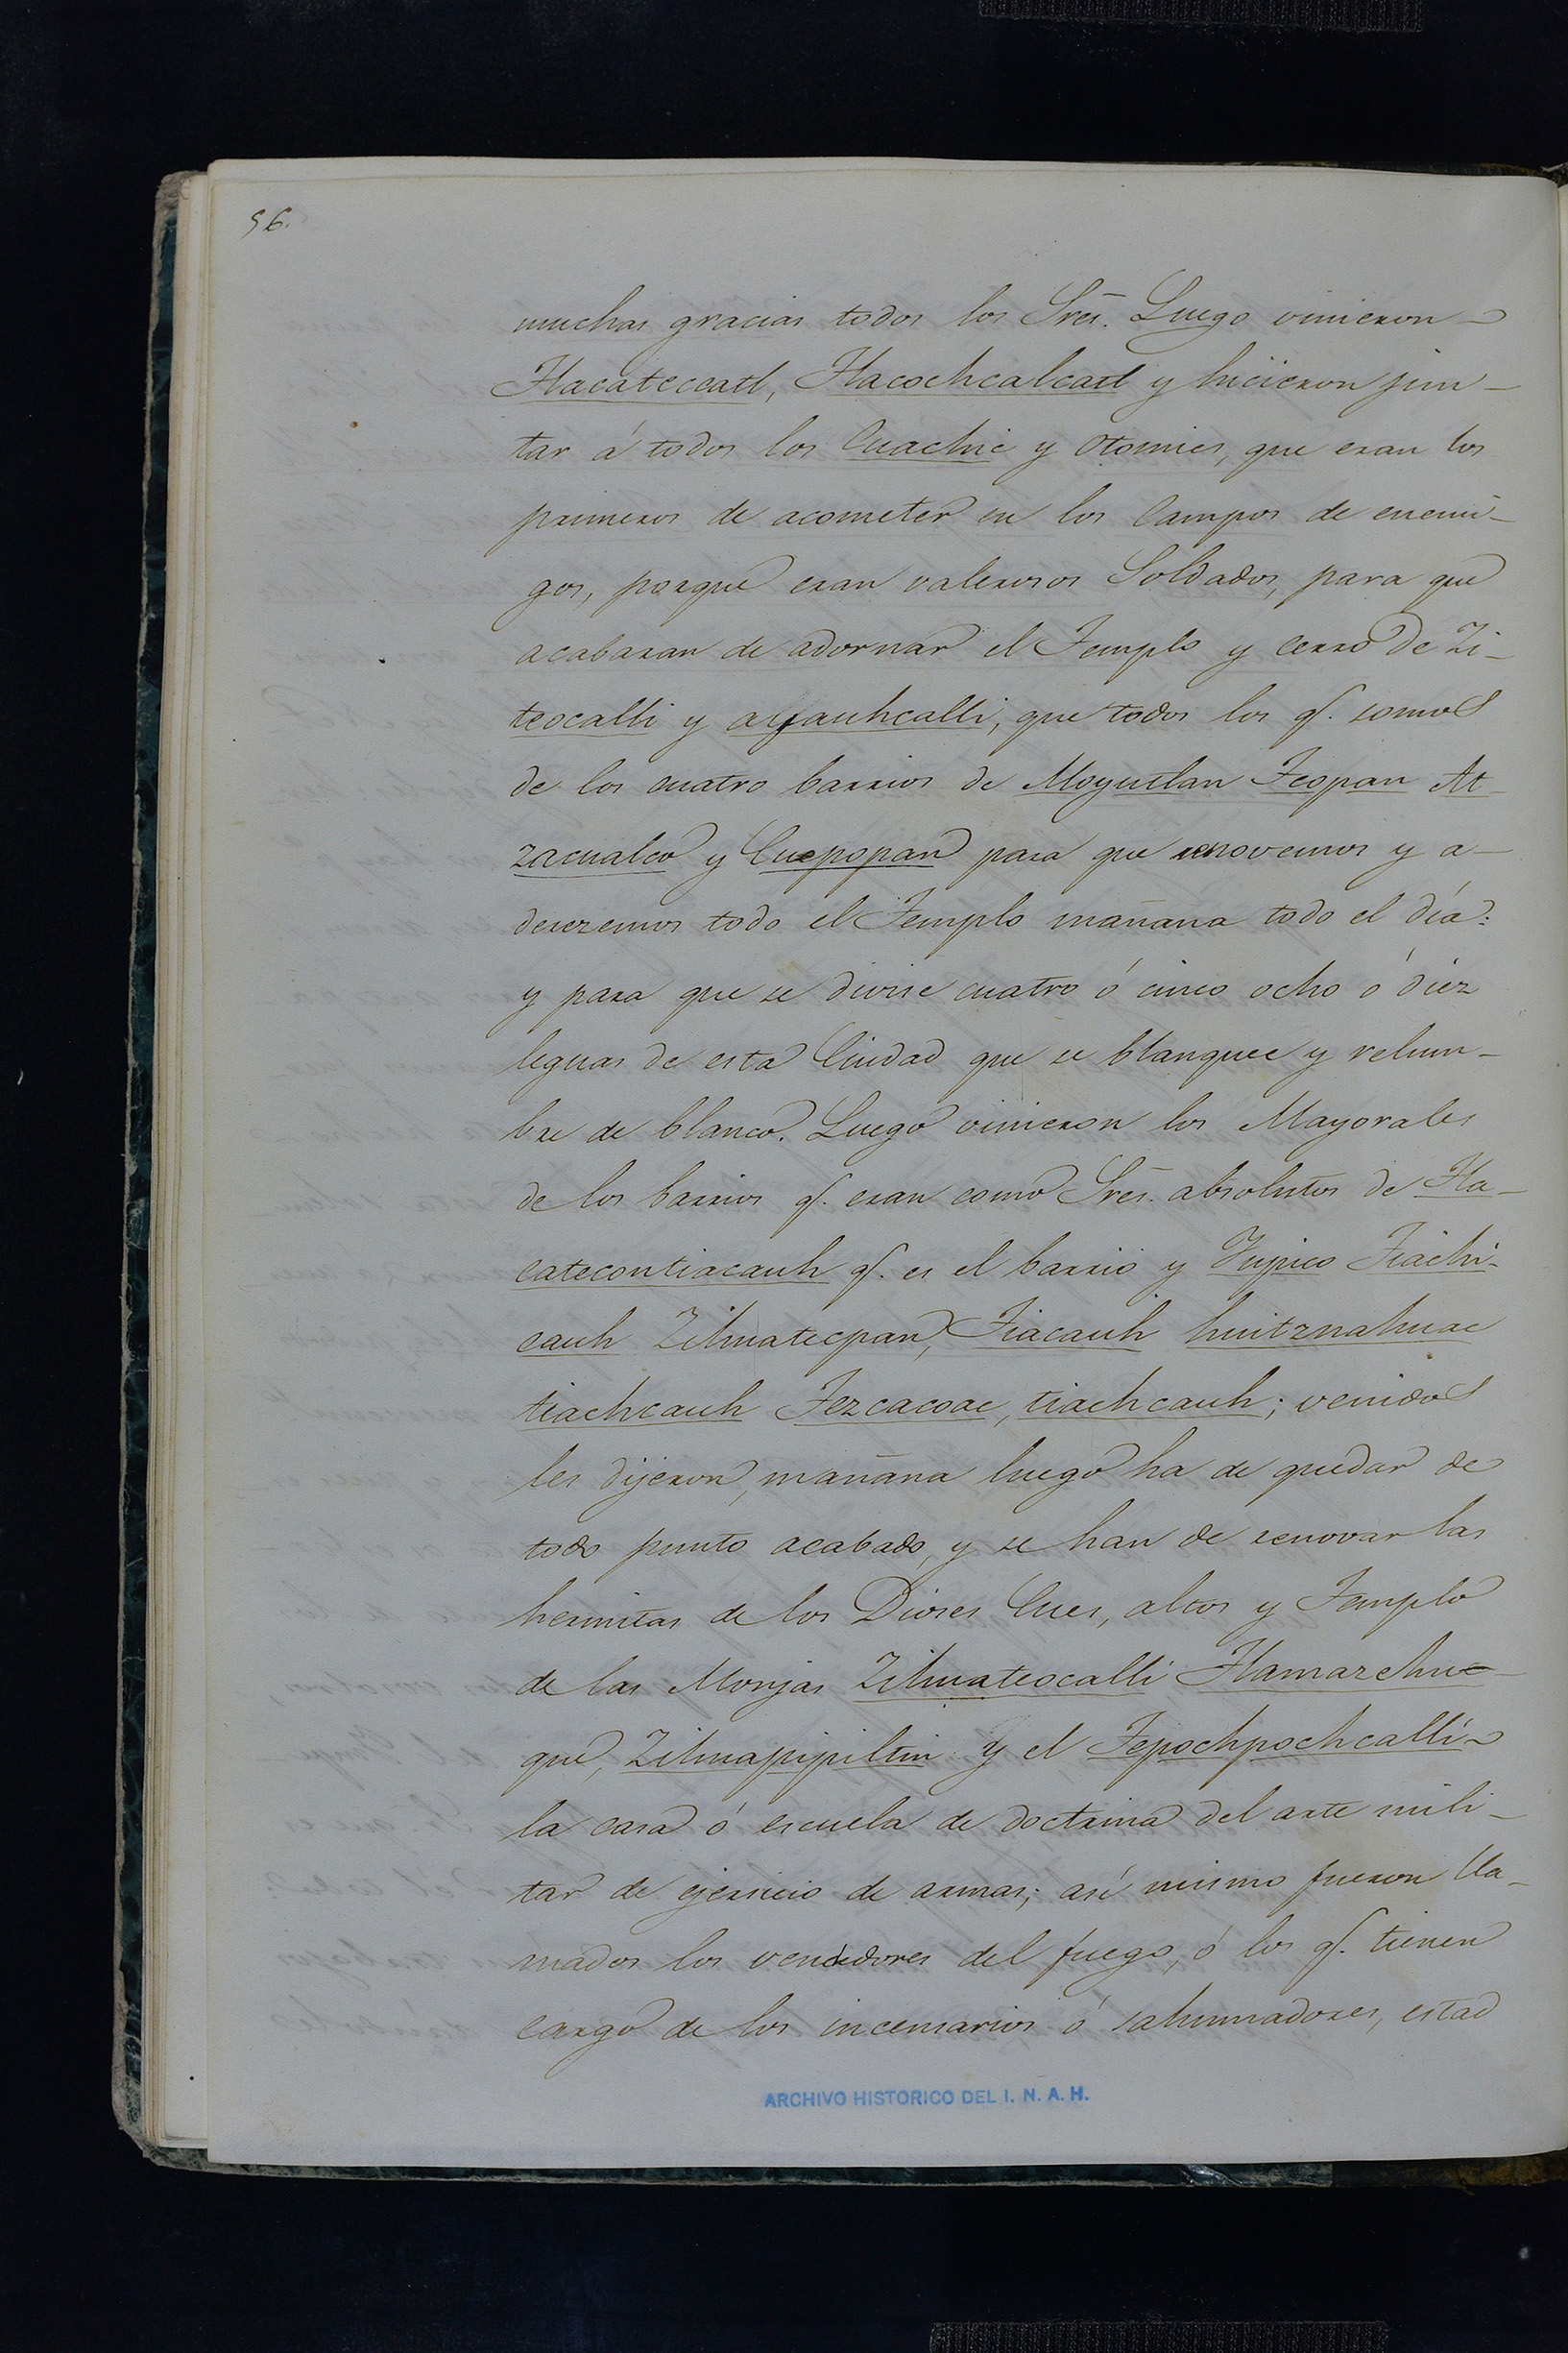 56.
muchas gracias todos los Sres. Luego vinieron
Tlacateccatl, Tlacochcalcatl y hicieron jun-
tar á todos los Cuachic y Otomies, que eran los
primeros de acometer en los Campos de enemi-
gos, porque eran valerosos Soldados, para que
acabaran de adornar el Templo y cerro de Zi-
teocalli y ayauhcalli, que todos los q. somos
de los cuatro barrios de Moyutlan Teopan At-
zacualco y Cuepopan para que renovemos y a-
deresemos todo el Templo mañana todo el día:
y para que se divise cuatro ó cinco ocho ó diez
leguas de esta Ciudad que se blanquee y relum-
bre de blanco. Luego vinieron los Mayorales
de los barrios q. eran como Sres. absolutos de Tla-
catecontiacauh q. es el barrio y Yupico Tiachi-
cauh Zihuatecpan, Tiacauh huitznahuac
tiachcauh Tezcacoac, tiachcauh; venidos
les dijeron, mañana luego ha de quedar de
todo punto acabado, y se han de renovar las
hermitas de los Dioses Cues, altos y Templo
de las Monjas Zihuateocalli Tlamazehue-
que, Zihuapipiltin y el Tepochpochcalli
la casa ó escuela de doctrina del arte mili-
tar de ejersicio de armas; asi mismo fueron lla-
mados los vendedores del fuego, ó los q. tienen
cargo de los incensarios ó sahumadores, estad
ARCHIVO HISTORICO DEL I. N. A. H.